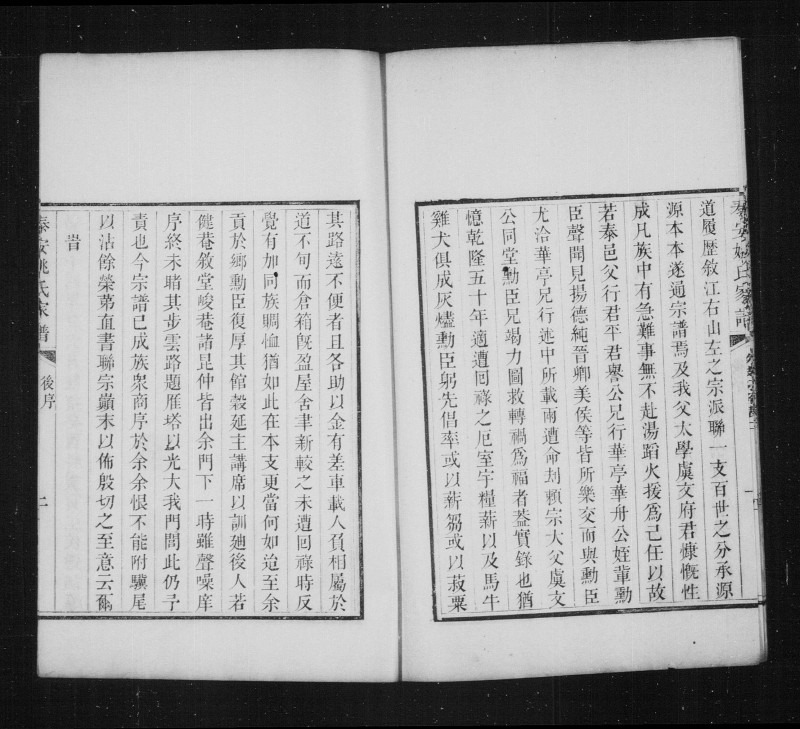 泰安姚氏家譜
道履歷敘江右山左之宗派聯一支百世之分承源
源本本遂通宗譜焉及我父太學虞文府君慷慨性
成凡族中有急難事無不赴湯蹈火援為己任以故
若泰邑父行君平君譽公兄行華亭華舟公姪輩勳
臣聲聞見揚德純晉卿美侯等皆所樂交而與勳臣
尤洽華亭兄行述中所載兩遭命刦賴宗大父虞文
公同堂勳臣兄竭力圖救轉禍為福者蓋實錄也猶
憶乾隆五十年適遭囘祿之厄室宇糧薪以及馬牛
雞犬俱成灰燼勳臣躬先倡率或以薪芻或以菽粟
其路遠不便者且各助以金有差車載人負相屬於
道不旬而倉箱旣盈屋舍聿新較之未遭囘祿時反
覺有加同族賙恤猶如此在本支更當何如迨至余
貢於鄉勳臣復厚其館穀延主講席以訓廸後人若
健菴敘堂峻菴諸昆仲皆出余門下一時雖聲噪庠
序終未睹其步雲路題雁塔以光大我門閭此仍予
責也今宗譜已成族衆商序於余余恨不能附驥尾
以沾餘榮苐直書聯宗巔末以佈殷切之至意云爾
旹
泰安姚氏家譜
後序
二